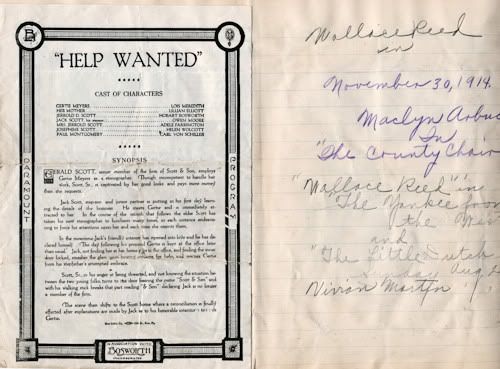 "HELP WANTED"
CAST OF CHARACTERS
GERTIE MEYERS LOIS MEREDITH
HER MOTHER LILLIAN ELLIOTT
JERROLD D. SCOTT HOBART BOSWORTH
JACK SCOTT, his OWEN MOORE
MRS. JERROLD SCOTT ADELE FARRINGTON
JOSEPHINE SCOTT HELEN WOLCOTT
PAUL MONTGOMERY CARL VON SCHILLER
SYNOPSIS
JERROLD SCOTT, senior member of the firm of Scott & Son, employs
Gertie Meyers as a stenographer. Though incompetent to handle her
work, Scott, Sr., is captivated by her good looks and pays more money
than she requests.
Jack Scott, step-son and junior partner is putting in his first day learn-
ing the details of the business. He meets Gertie and is immediately at-
tracted to her. In the course of the month that follows the elder Scott has
taken his new stenographer to luncheon many times, at each instance endeav-
oring to force his attentions upon her and each time she resents them.
In the meantime Jack's friendly interest has ripened into love and he has de-
clared himself. The day following his proposal Gertie is kept at the office later
than usual. Jack, not finding her at her home, goes to the office, and finding the
door locked, smashes the glass upon hearing screams for help, and rescues Gertie
from his stepfather's attempted embrace.
Scott, Sr., in his anger at being thwarted, and not knowing the situation between
the two young folks turns to the door bearing the name "Scott & Son" and
with his walking stick breaks that part reading "& Son" declaring Jack is no longer
a member of the firm.
The scene then shifts to the Scott home where a reconciliation is finally
effected after explanations are made by Jack to his honorable intentions towards
Gertie.
PARAMOUNT
PROGRAM
IN ASSOCIATION WITH
BOSWORTH
INCORPORATED
Wallace Reed
in
November 30, 1914.
Maclyn Arbuc
In
"The County Chair
"Wallace Reed" in
The Yankee from
the West
and
"The Little Dutch
Sunday Aug.
Vivian Martin